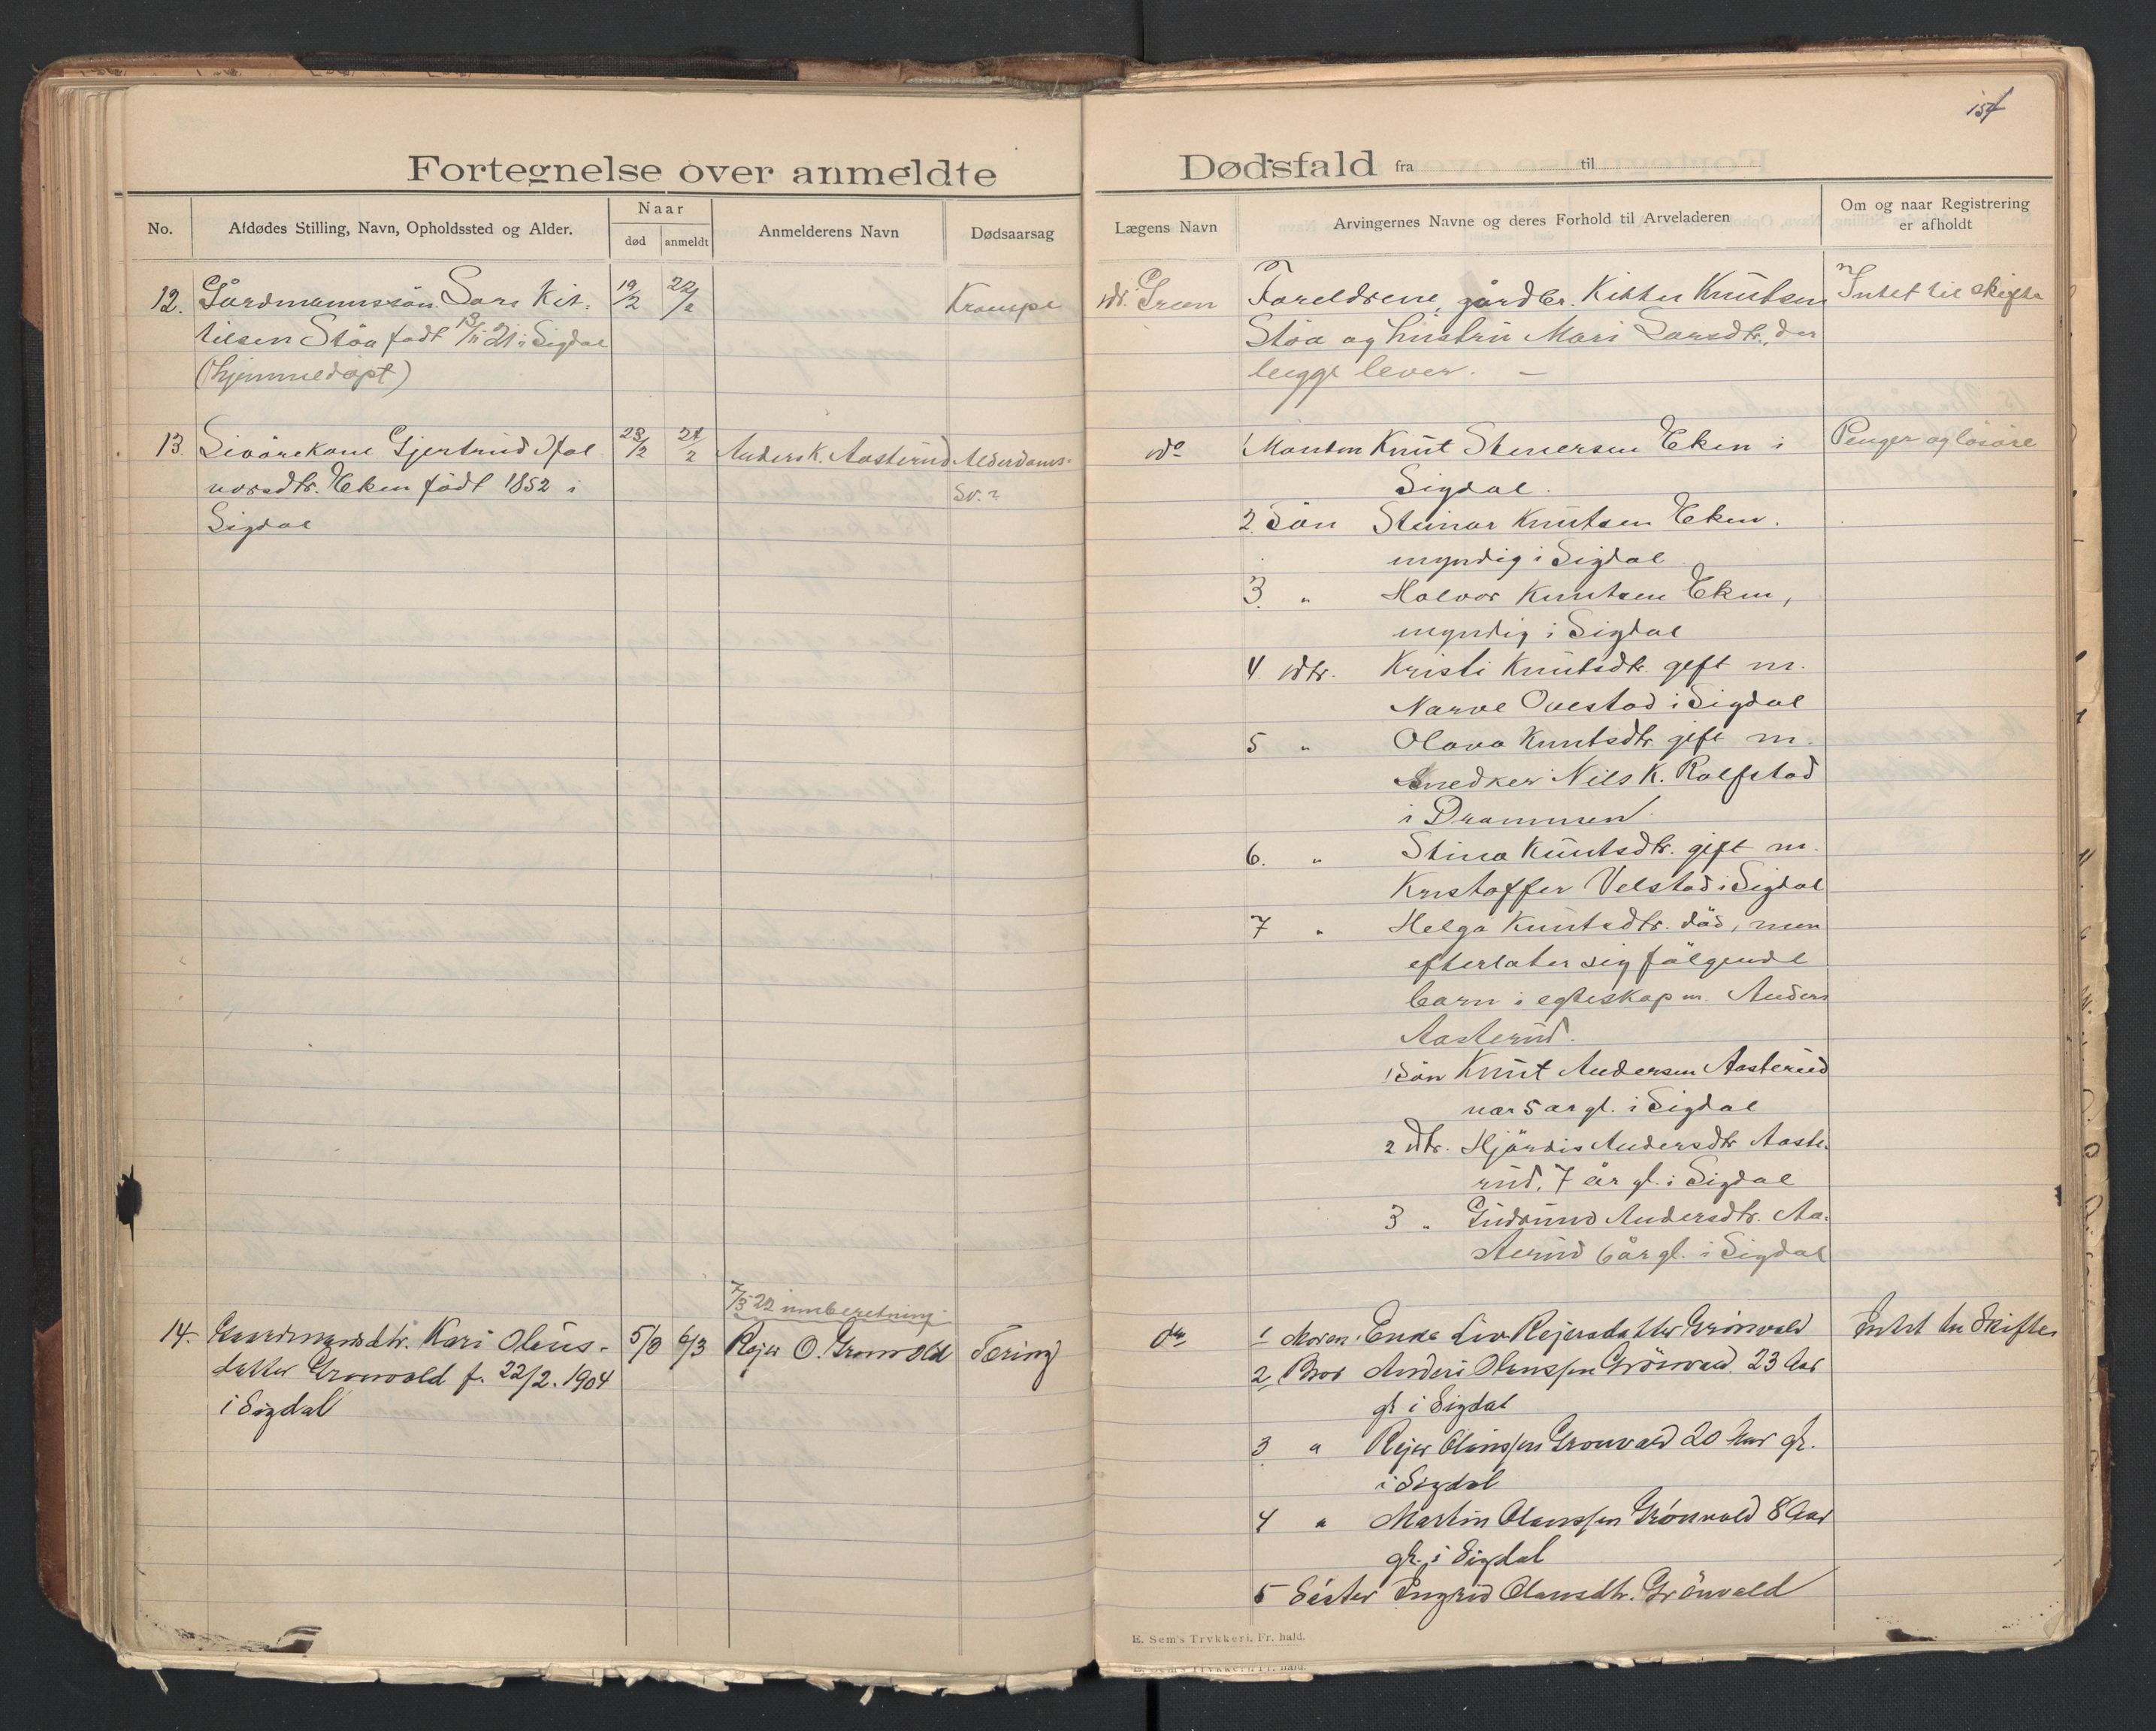 154
Fortegnelse over anmeldte Dødsfald fra til
No.
Afdødes Stilling, Navn, Opholdssted og Alder.
Naar
død
anmeldt
Anmelderens Navn
Dødsaarsag
Lægens Navn
Arvingernes Navne og deres Forhold til Arveladeren
Om og naar Registrering
er afholdt
12. Gårdmannssön Lars Kit-
tilsen Stöa födt 13/11 21 i Sigdal
(hjemmedöpt)
19/2
22/2
Krampe
dr. Green
Foreldrene, gårdbr. Kittil Knutsen
Stöa og hustru Mari Larsdtr., der
begge lever. —
Intet til skifte
13. Livörekone Gjertrud Hal-
vorsdtr. Eken födt 1852 i
Sigdal
23/2
27/2
Anders K. Aasterud
Alderdoms-
sv.?
do
1 Manden Knut Stenersen Eken i
Sigdal.
2. Sön Steinar Knutsen Eken.
myndig i Sigdal
3. " Halvor Knutsen Eken,
myndig i Sigdal
4. dtr. Kristi Knutsdtr. gift m.
Narve Ovestad i Sigdal
5 " Olava Knutsdtr. gift m.
Snedker Nils K. Rolfstad
i Drammen.
6. " Stina Knutsdtr. gift m.
Kristoffer Velstad i Sigdal
7 " Helga Knutsdtr. död, men
efterlater sig fölgende
barn i egteskap m. Anders
Aasterud.
1 Sön Knut Andersen Aasterud
nær 5 år gl. i Sigdal
2 dtr. Hjördis Andersdtr Aaste-
rud, 7 år gl. i Sigdal
3 " Gudrund Andersdtr. Aa-
sterud 6 år gl. i Sigdal
Penger og lösöre
7/3 22 innberetning
14. Gaardmandsdtr. Kari Olaus-
datter Grønvold f. 22/2. 1904
i Sigdal
5/3
6/3
Rejer O. Grønvold
Tæring
do
1 Moren: Enke Liv Rejersdatter Grönvold
2, Bror Anders Olaussen Grönvold 23 Aar
gl. i Sigdal
3 " Rejer Olaussen Grønvold 20 Aar gl.
i Sigdal
4 " Martin Olaussen Grønvold 8 Aar
gl. i Sigdal
5 Søster Ingrid Olausdtr. Grönvold
Intet til Skifte
E. Sem's Trykkeri, Fr. hald.